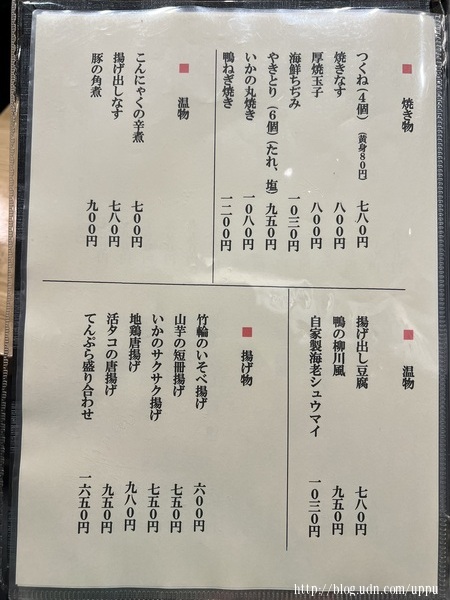 ■ 焼き物
つくね(4個)(黄身80円) 七八0円
焼きなす 八00円
厚焼玉子 八00円
海鮮ちぢみ 一0三0円
やきとり(6個)(たれ、塩) 九五0円
いかの丸焼き 一0八0円
鴨ねぎ焼き 一二00円
■ 温物
こんにゃくの辛煮 七00円
揚げ出しなす 七八0円
豚の角煮 九00円
■ 温物
揚げ出し豆腐 七八0円
鴨の柳川風 九五0円
自家製海老シュウマイ 一0三0円
■ 揚げ物
竹輪のいそべ揚げ 六00円
山芋の短冊揚げ 七五0円
いかのサクサク揚げ 七五0円
地鶏唐揚げ 九八0円
活タコの唐揚げ 九五0円
てんぷら盛り合わせ 一六五0円
http://blog.udn.com/uppu